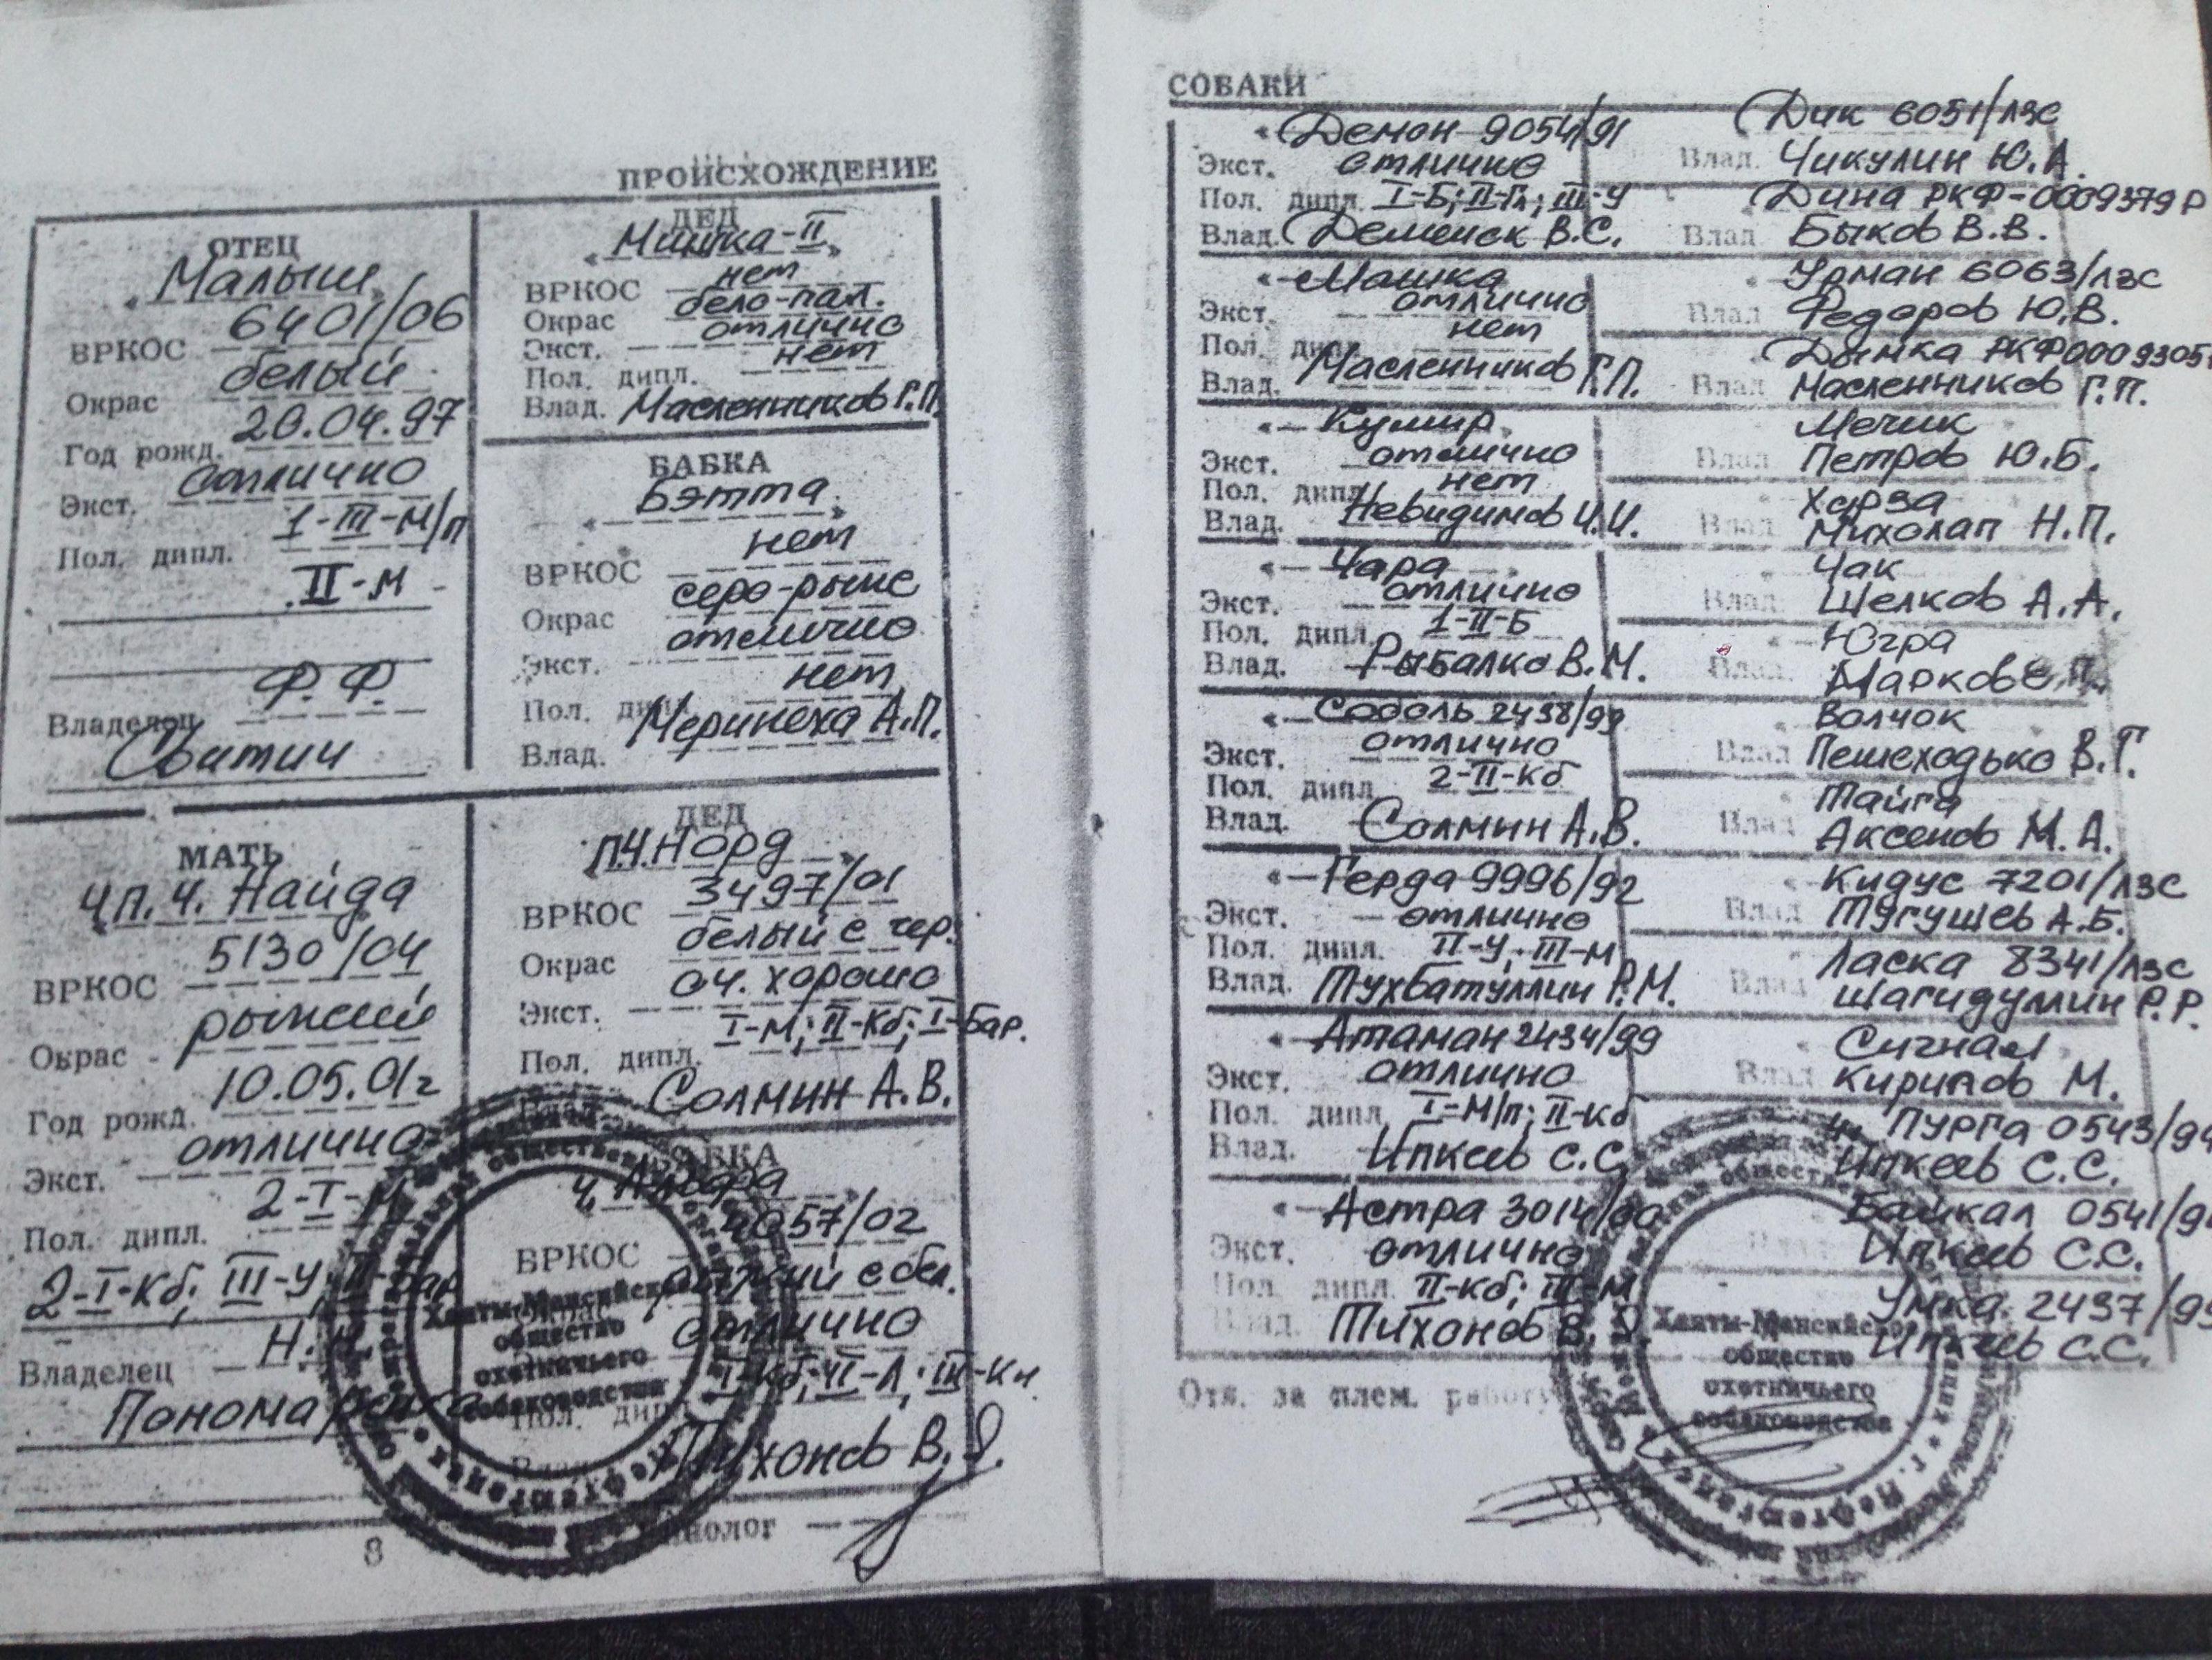 ПРОИСХОЖДЕНИЕ
ОТЕЦ
Малыш
ВРКОС 6401/06
Окрас белый
Год рожд. 20.04.97
Экст. отлично
Пол. дипл. 1-III-М/п
II-М
Владелец Ф.Ф.
Сватич
ДЕД
«Мишка-II»
ВРКОС нет
Окрас бело-пал.
Экст. отлично
Пол. дипл. нет
Влад. Масленников Г.П.
БАБКА
« Бэтта
ВРКОС нет
Окрас серо-рыже
Экст. отлично
Пол. дипл. нет
Влад. Меринеха А.П.
МАТЬ
ч п.ч. Найда
ВРКОС 5130/04
Окрас рыжий
Год рожд. 10.05.01г
Экст. отлично
Пол. дипл. 2-I-М
2-I-кб; III-У; II-бар
Владелец Н.
Пономаренко
ДЕД
п.ч. Норд
ВРКОС 3497/01
Окрас белый с чер.
Экст. оч. хорошо
Пол. дипл. I-М; II-Кб; I-Бар.
Влад. Солмин А.В.
БАБКА
ч. Альфа
ВРКОС 4057/02
Окрас рыжий с бел.
отлично
Пол. дипл. I-кб; II-Л; III-Кн
Влад. Тихонов В.
Кинолог
8
Ханты-Мансийское
общество
охотничьего
собаководства
СОБАКИ
« Демон 9054/91
Экст. отлично
Пол. дипл. I-Б; II-Гл; III-У
Влад. Деменск В.С.
Дик 6051/лзс
Влад. Чикулин Ю.А.
Дина РКФ-0009379Р
Влад Быков В.В.
« Машка
Экст. отлично
Пол. дипл. нет
Влад. Масленников Г.П.
« Урман 6063/лзс
Влад Федоров Ю.В.
Дымка РКФ0009305
Влад Масленников Г.П.
« Кумир
Экст. отлично
Пол. дипл. нет
Влад. Невидимов И.И.
Мечик
Влад Петров Ю.Б.
« Харза
Влад Михолап Н.П.
« Чара
Экст. отлично
Пол. дипл. 1-II-Б
Влад. Рыбалко В.М.
« Чак
Влад Шелков А.А.
« Югра
Влад. Марков Е.П.
« Соболь 2438/99
Экст. отлично
Пол. дипл. 2-II-Кб
Влад. Солмин А.В.
« Волчок
Влад Пешеходько В.Г.
« Тайга
Влад Аксенов М.А.
« Герда 9996/92
Экст. отлично
Пол. дипл. II-У; III-М
Влад. Тухбатуллин Р.М.
« Кидус 7201/лзс
Влад Тугушев А.Б.
Ласка 8341/лзс
Влад Шагидуллин Р.Р.
« Атаман 2434/99
Экст. отлично
Пол. дипл. I-М/п; II-Кб
Влад. Ипкеев С.С.
« Сигнал
Влад Кирилов М.
ч. Пурга 0543/99
Ипкеев С.С.
« Астра 3014/00
Экст. отлично
Пол. дипл. II-Кб; III-М
Влад. Тихонов В.
Байкал 0541/9
Ипкеев С.С.
Умка 2437/99
Ипкеев С.С.
Отв. за плем. работу
Ханты-Мансийское
общество
охотничьего
собаководства